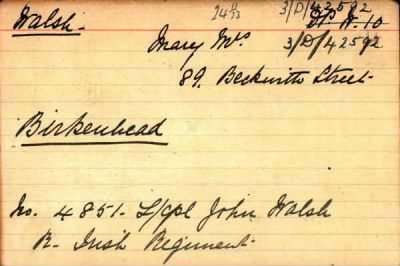 3/D/42592
Walsh.
Mary Mrs
3/D/42592
89, Beckwith Street
Birkenhead
No. 4851. L/Cpl John Walsh
R. Irish Regiment.